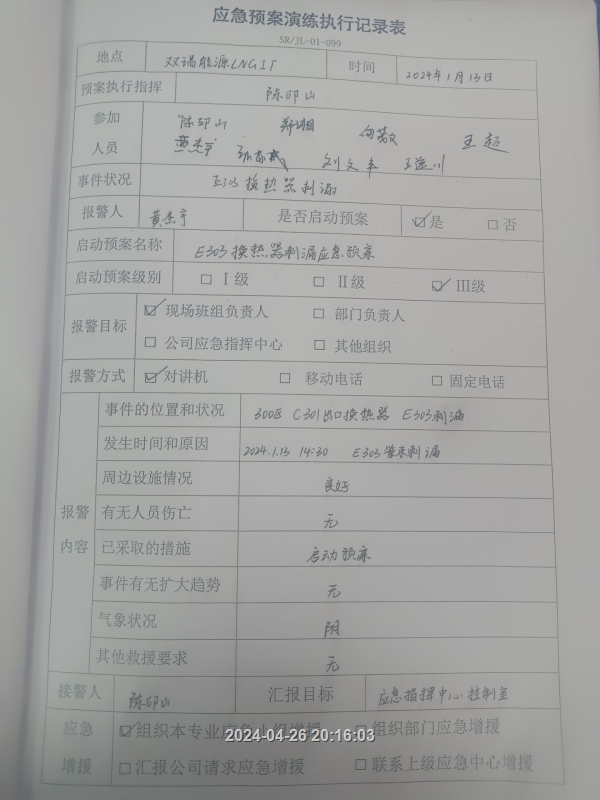 应急预案演练执行记录表
SR/JL-01-099
地点 双瑞能源LNG工厂 时间 2024年1月13日
预案执行指挥 陈邱山
参加人员 陈邱山 王超
黄杰宇 刘文丰
事件状况 E303换热器刺漏
报警人 黄杰宇 是否启动预案 ☑是 □否
启动预案名称 E303换热器刺漏应急预案
启动预案级别 □Ⅰ级 □Ⅱ级 ☑Ⅲ级
报警目标 ☑现场班组负责人 □部门负责人
□公司应急指挥中心 □其他组织
报警方式 ☑对讲机 □移动电话 □固定电话
报警内容
事件的位置和状况 300区 C301出口换热器 E303刺漏
发生时间和原因 2024.1.13 14:30 E303管束刺漏
周边设施情况 良好
有无人员伤亡 无
已采取的措施 启动预案
事件有无扩大趋势 无
气象状况 阴
其他救援要求 无
接警人 陈邱山 汇报目标 应急指挥中心控制室
应急增援 ☑组织本专业应急小组增援 □组织部门应急增援
□汇报公司请求应急增援 □联系上级应急中心增援
2024-04-26 20:16:03